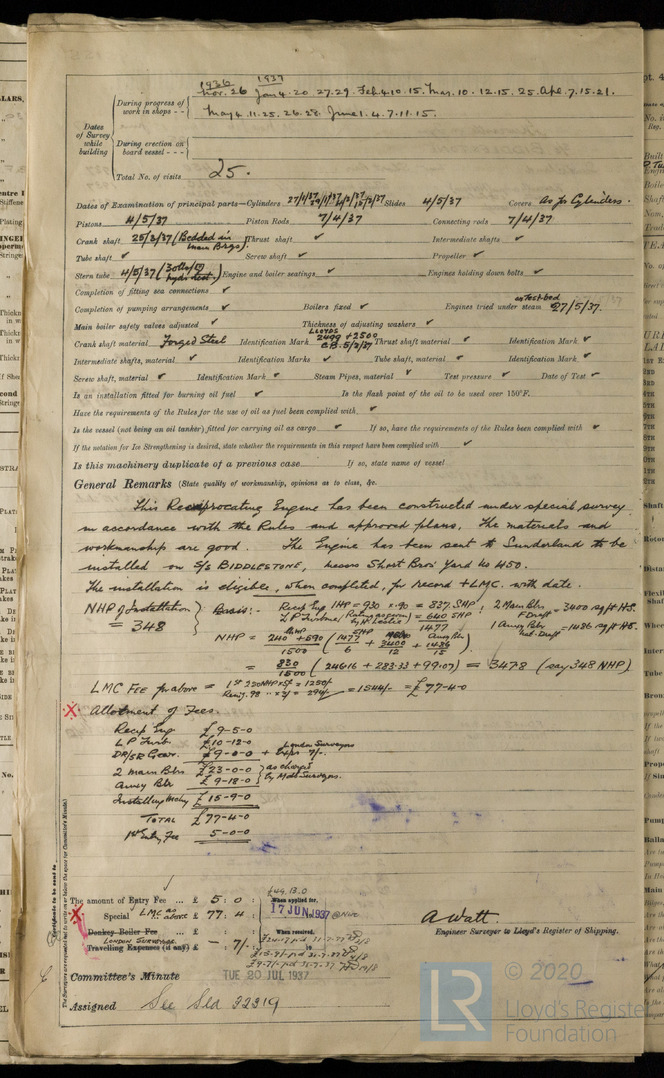 1936 1937
During progress of work in shops - - Nov. 26 Jan 4. 20. 27. 29. Feb. 4. 10. 15. Mar. 10. 12. 15. 25. Apl. 7. 15. 21.
May 4. 11. 25. 26. 28. June 1. 4. 7. 11. 15.
Dates of Survey while building
During erection on board vessel - - -
Total No. of visits 25.
Dates of Examination of principal parts—Cylinders Slides 4/5/37 Covers as for Cylinders.
Pistons 4/5/37 Piston Rods 7/4/37 Connecting rods 7/4/37
Crank shaft 25/3/37 (Bedded in main Brgs) Thrust shaft ✓ Intermediate shafts ✓
Tube shaft ✓ Screw shaft ✓ Propeller ✓
Stern tube 4/5/37 Engine and boiler seatings ✓ Engines holding down bolts ✓
Completion of fitting sea connections ✓
Completion of pumping arrangements ✓ Boilers fixed ✓ Engines tried under steam on Test-bed 27/5/37.
Main boiler safety valves adjusted ✓ Thickness of adjusting washers ✓
Crank shaft material Forged Steel Identification Mark LLOYDS 2499 + 2500 5/3/37 Thrust shaft material ✓ Identification Mark ✓
Intermediate shafts, material ✓ Identification Marks ✓ Tube shaft, material ✓ Identification Mark ✓
Screw shaft, material ✓ Identification Mark ✓ Steam Pipes, material ✓ Test pressure ✓ Date of Test ✓
Is an installation fitted for burning oil fuel ✓ Is the flash point of the oil to be used over 150°F.
Have the requirements of the Rules for the use of oil as fuel been complied with ✓
Is the vessel (not being an oil tanker) fitted for carrying oil as cargo ✓ If so, have the requirements of the Rules been complied with ✓
If the notation for Ice Strengthening is desired, state whether the requirements in this respect have been complied with ✓
Is this machinery duplicate of a previous case If so, state name of vessel
General Remarks (State quality of workmanship, opinions as to class, &c.
This Reciprocating Engine has been constructed under special survey
in accordance with the Rules and approved plans. The materials and
workmanship are good. The Engine has been sent to Sunderland to be
installed on S/S BIDDLESTONE, Messrs Short Bros' Yard No 450.
The installation is eligible, when completed, for record +LMC. with date.
NHP of Installation = 348 Basis:- Recip Eng IHP = 930 x .90 = 837 SHP ; 2 Main Blrs F Draft = 3400 sq ft HS.
LP Turbine = 640 SHP 1 Auxy Blr Nat. Draft = 1486 sq ft HS.
1477
NHP = 240 + 590 / 1500 ( 1477 / 6 + 3400 / 12 + 1486 / 15 )
= 830 / 1500 ( 246.16 + 283.33 + 99.07 ) = 347.8 (say 348 NHP)
LMC Fee for above = 1st 250 NHP x 5/- = 1250/-
Remg. 98 " x 3/- = 294/- = 1544/- = £77-4-0
Allotment of Fees.
Recip Eng £9-5-0
LP Turb. £10-12-0
DR/SR Gear. £9-0-0 + Exps 7/- London Surveyors
2 Main Blrs £23-0-0 as charged
Auxy Blr £9-18-0 by Mdb Surveyors.
Installing Mchy £15-9-0
TOTAL £77-4-0
1st Entry Fee 5-0-0
Certificate to be sent to
(The Surveyors are requested not to write on or below the space for Committee's Minute.)
The amount of Entry Fee ... £ 5 : 0 : £49.13.0
When applied for,
Special LMC as above £ 77 : 4 : 17 JUN 1937 @ Nwc
Donkey Boiler Fee When received,
LONDON SURVEYOR
Travelling Expenses (if any) £ — 7/-
A Watt.
Engineer Surveyor to Lloyd's Register of Shipping.
Committee's Minute TUE 20 JUL 1937
Assigned See Sld 32319
© 2020
LR Lloyd's Register
Foundation